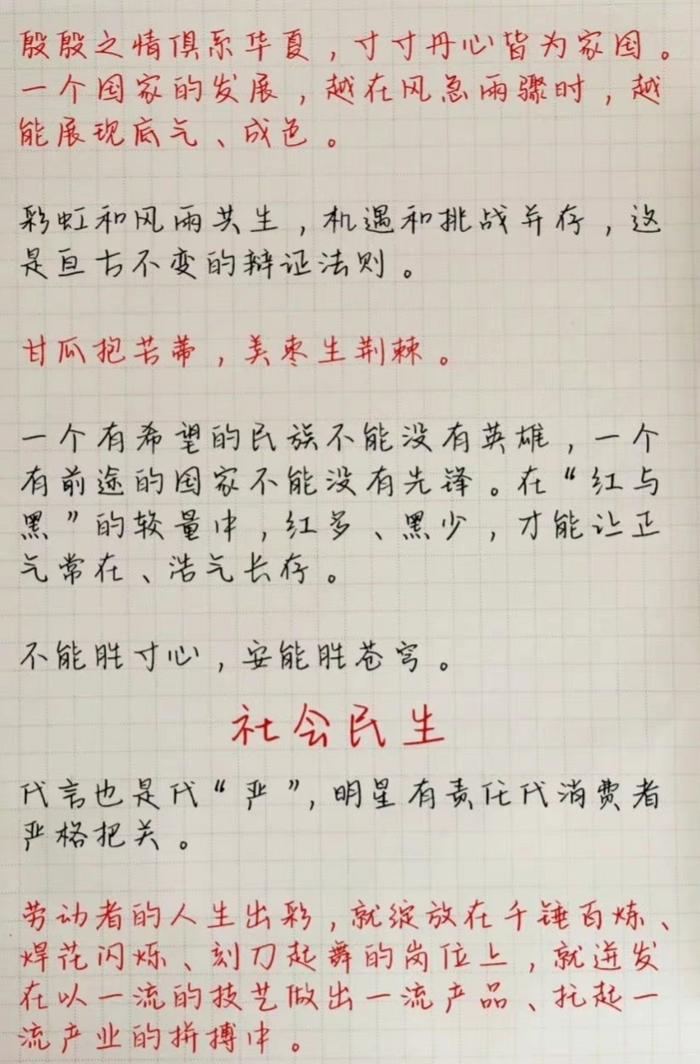 殷殷之情俱系华夏，寸寸丹心皆为家国。
一个国家的发展，越在风急雨骤时，越
能展现底气、成色。
彩虹和风雨共生，机遇和挑战并存，这
是亘古不变的辩证法则。
甘瓜抱苦蒂，美枣生荆棘。
一个有希望的民族不能没有英雄，一个
有前途的国家不能没有先锋。在“红与
黑”的较量中，红多、黑少，才能让正
气常在、浩气长存。
不能胜寸心，安能胜苍穹。
社会民生
代言也是代“严”，明星有责任代消费者
严格把关。
劳动者的人生出彩，就绽放在千锤百炼、
焊花闪烁、刻刀起舞的岗位上，就迸发
在以一流的技艺做出一流产品、托起一
流产业的拼搏中。